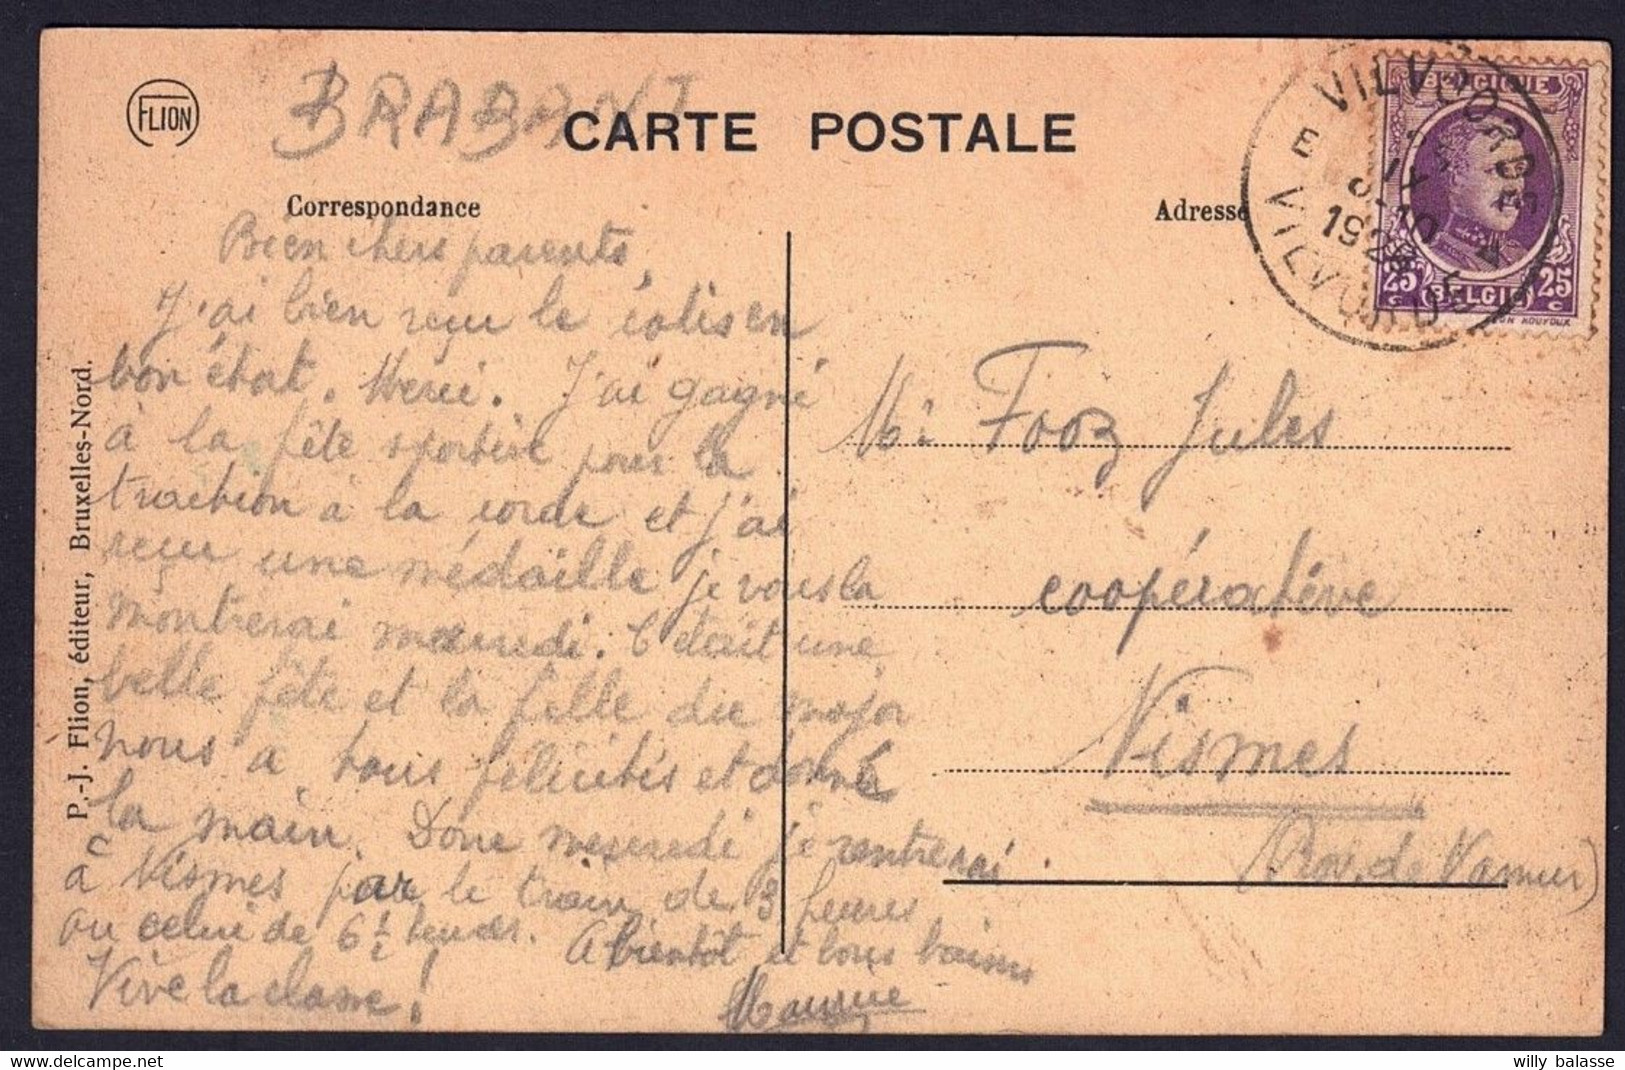 FLION
BRABANT
CARTE POSTALE
Correspondance
Adresse
Bien chers parents,
J'ai bien reçu le colis en
bon état. Merci. J'ai gagné
à la fête sportive pour la
traction à la corde et j'ai
reçu une médaille je vous la
montrerai mercredi. C'était une
belle fête et la fille du major
nous a tous félicités et donné
la main. Donc mercredi je rentrerai
à Nismes par le train de 3 heures
ou celui de 6 1/2 heures. A bientôt et bons baisers
Vive la classe!
Maurice
P.-J. Flion, éditeur, Bruxelles-Nord.
VILVOORDE
E
IX
10
192
VILVORDE
BELGIQUE
25 c
BELGIË
25 c
Mr Fooz Jules
coopérative
Nismes
(Prov. de Namur)
willy balasse